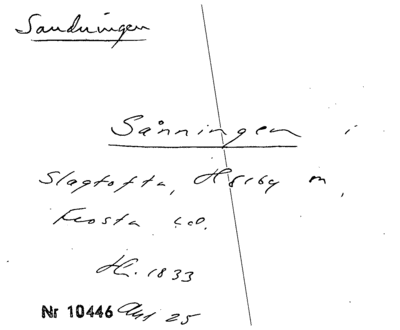 Sandningen
Sånningen i
Slagtofta, Hörby m,
Frosta h.d.
Hi. 1833
Nr 10446 Akt 25